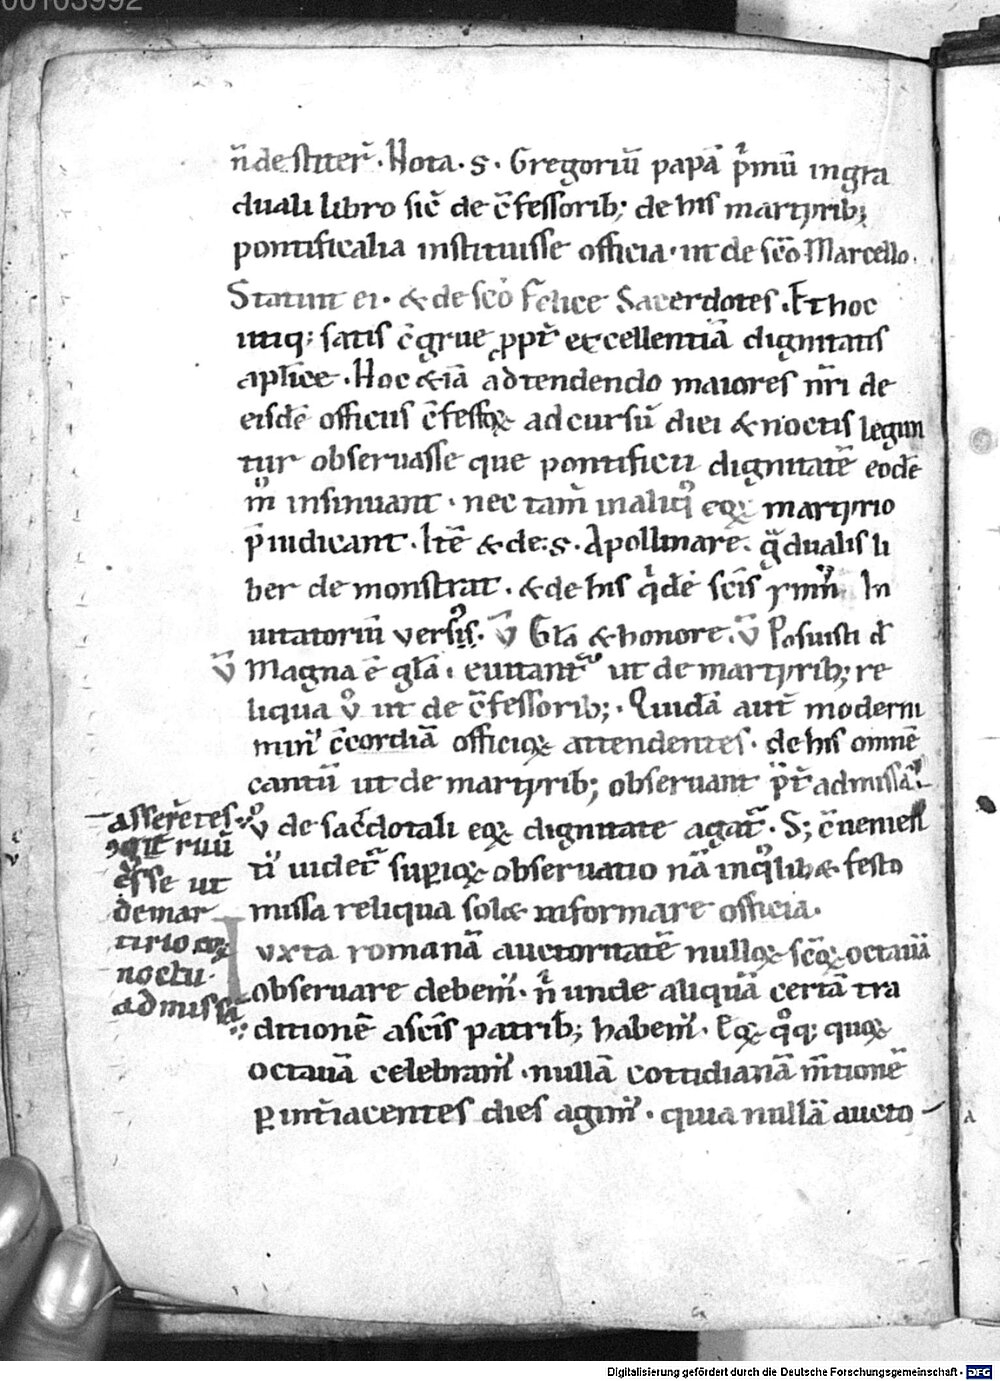 00103992
n̄ destiter̄. Nota. S. Gregoriū papā p̄mū ingra
duali libro sic̄ de c̄fessorib; de his martyrib;
pontificalia instituisse officia. ut de sc̄o Marcello.
Statuit ei. & de sc̄o Felice Sacerdotes. Et hoc
utiq; satis c̄grue ꝓpt̄ excellentiā dignitatis
ap̄lice. Hoc & iā adtendendo maiores nr̄i de
eisdē officiis c̄fessoꝝ ad cursū diei & noctis legun
tur obseruasse que pontificii dignitatē eodē
m̊ insinuant. nec tam̄ in aliqͦ eoꝝ martyrio
p̄iudicant. Itē & de. S. Apollinare. gͣdualis li
ber demonstrat. & de his qͥdē sc̄is ymn̄ In
uitatoriū uersis. v̄ Gl̄a & honore. v̄ Posuisti d̄
v̄ Magna ē gl̄a. euitant᷑ ut de martyrib; re
liqua vͦ ut de c̄fessorib;. Quidā aut̄ moderni
min᷒ c̄cordiā officioꝝ attendentes. de his omnē
cantū ut de martyrib; obseruant p̄t̄ admissā.
vͦ de sac̄dotali eoꝝ dignitate agat᷑. S; c̄uenien
ti᷒ uidet᷑ supioꝝ obseruatio nā in qͦlib& festo
missa reliqua sol& informare officia.
Iuxta romanā auctoritatē nulloꝝ sc̄oꝝ octauā
obseruare debem᷒. n̄ unde aliquā certā tra
ditionē a sc̄is patrib; habem᷒. Eoꝝ qͦq; quoꝝ
octauā celebram᷒. nullā cottidianā m̄tionē
ꝑ int̄iacentes dies agim᷒. quia nullā aucto
asser̄etes
ꝯgr̄ ruū
esse ut
de mar
tirio eoꝝ
noctu.
ad missā
Digitalisierung gefördert durch die Deutsche Forschungsgemeinschaft - DFG